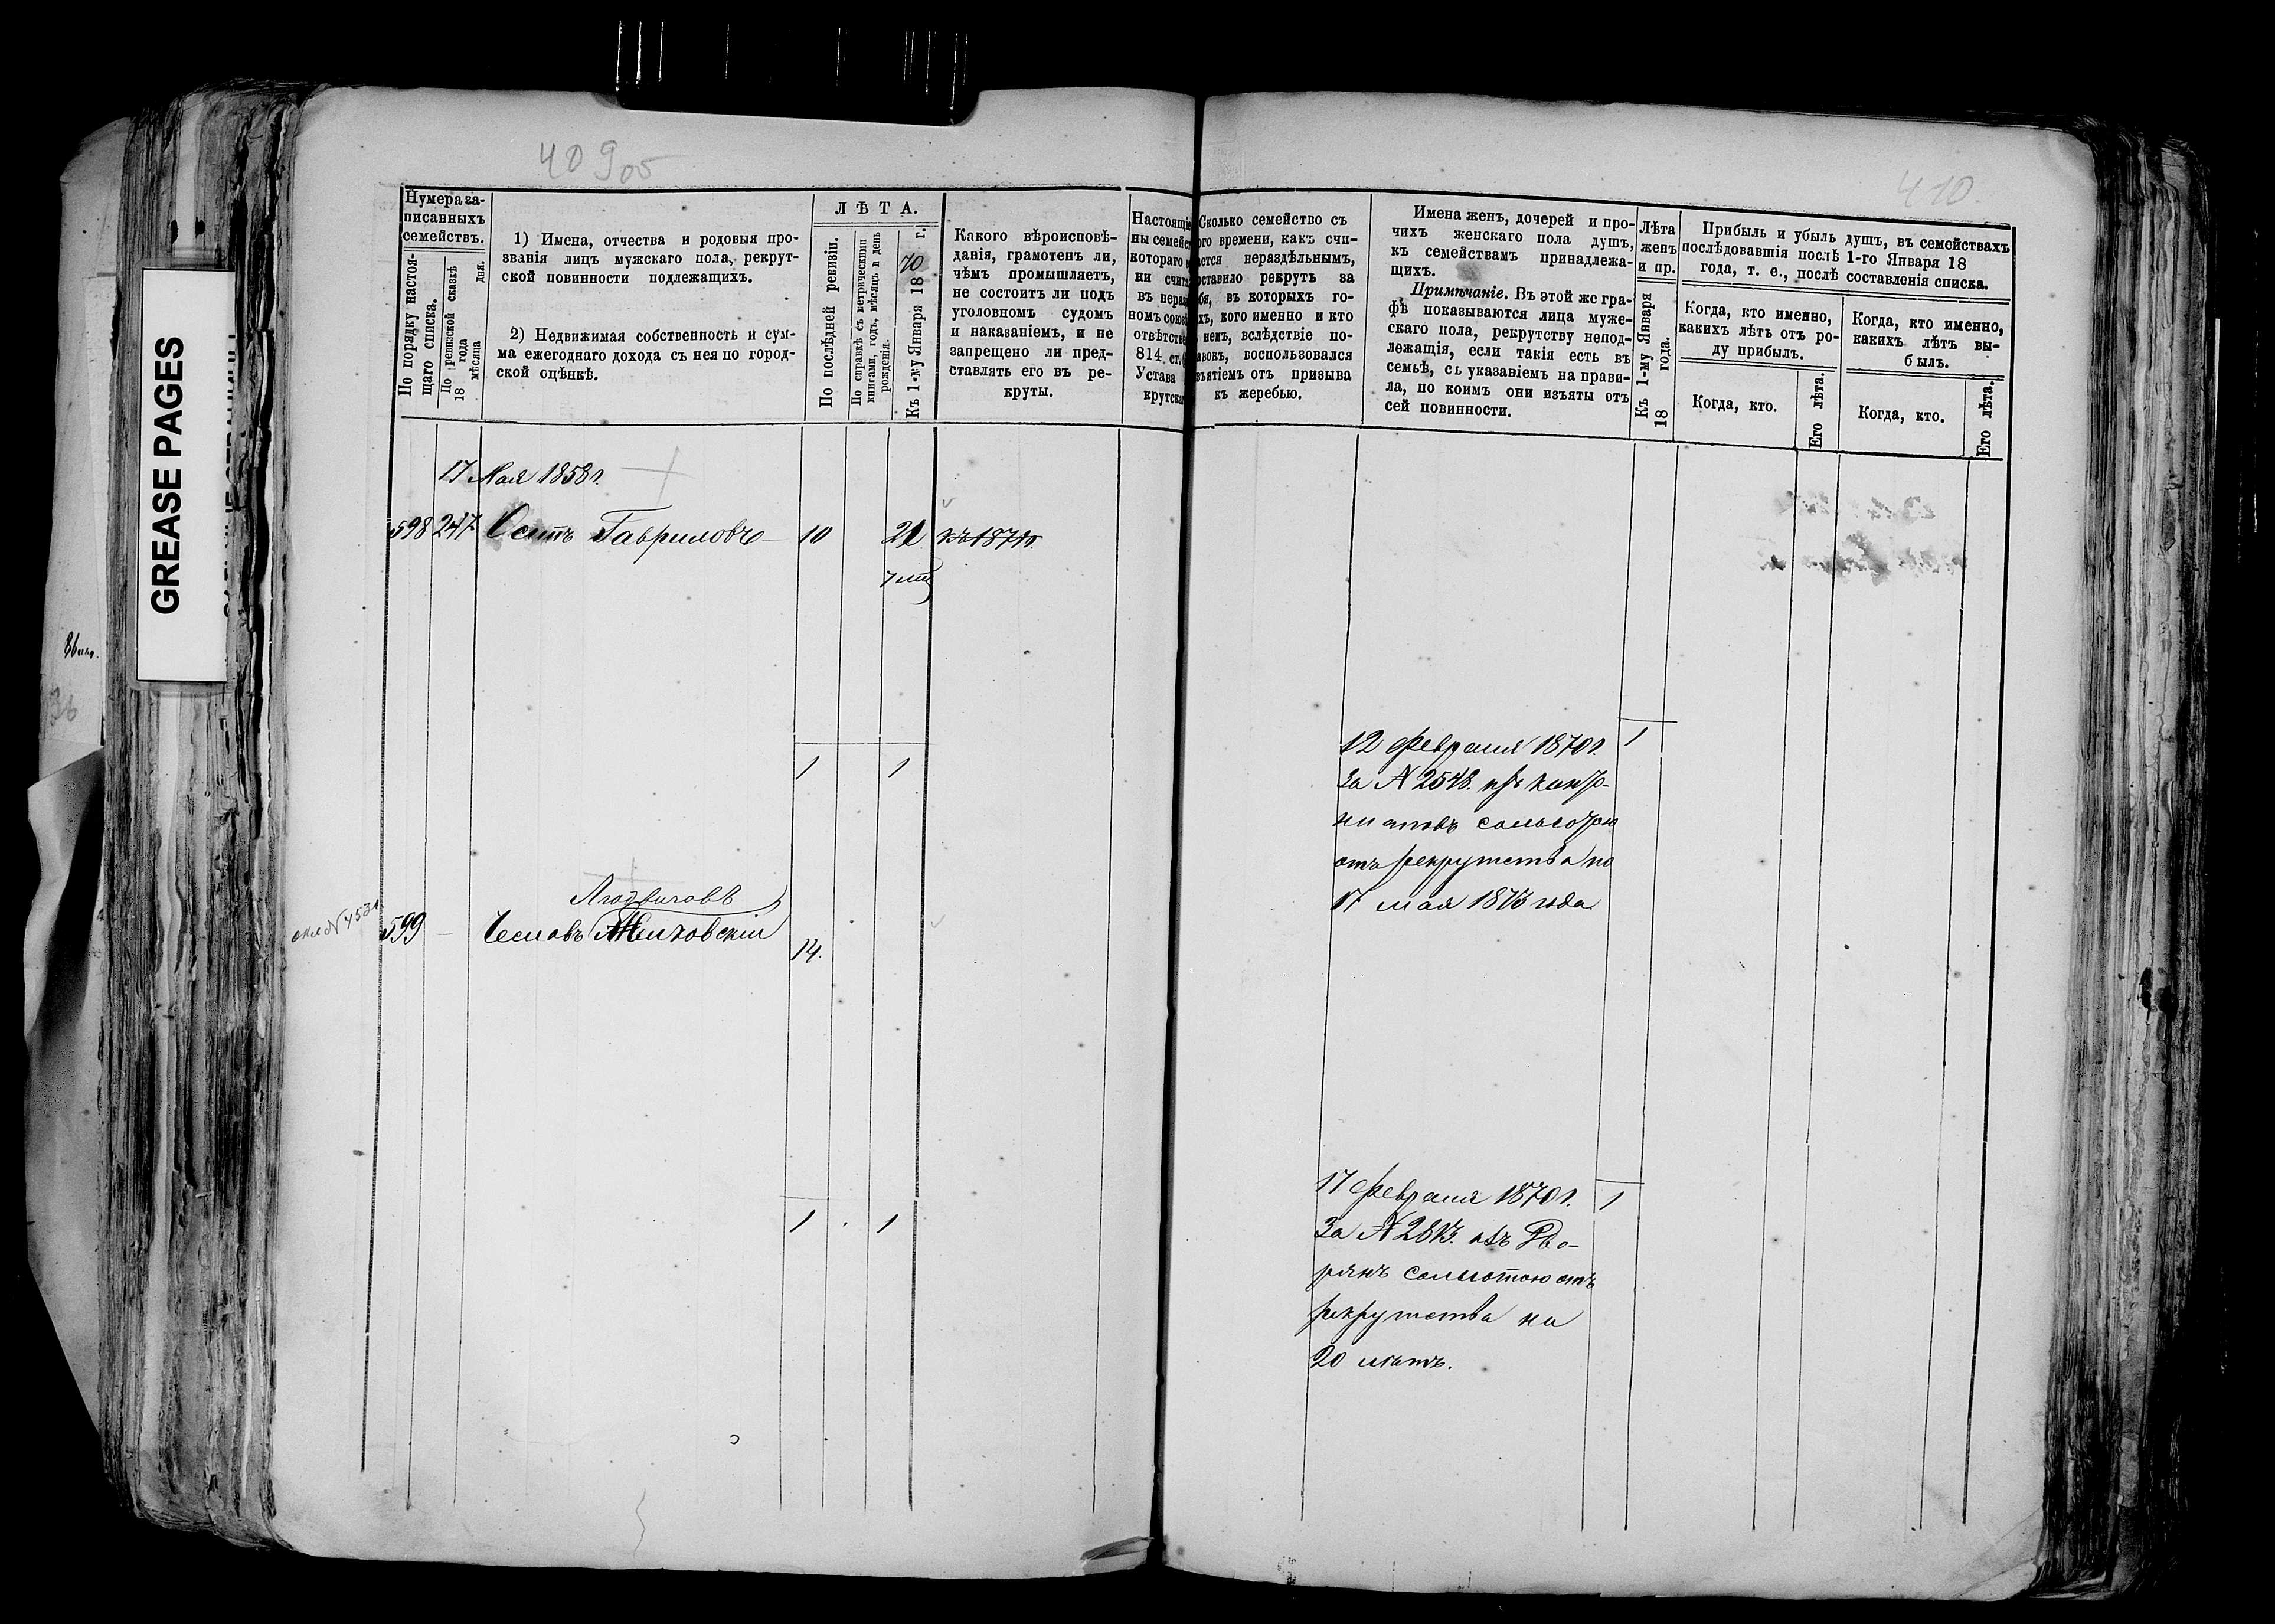 GREASE PAGES
409 об
410.
Нумера за-
писанныхъ
семействъ.
По порядку настоя-
щаго списка.
По ревизской сказкѣ
18 года
мѣсяца дня.
1) Имена, отчества и родовыя про-
званія лицъ мужскаго пола, рекрут-
ской повинности подлежащихъ.
2) Недвижимая собственность и сум-
ма ежегоднаго дохода съ нея по город-
ской оцѣнкѣ.
ЛѢТА.
По послѣдней ревизіи.
По справкѣ съ метрическими
книгами, годъ, мѣсяцъ и день
рожденія.
Къ 1-му Января 1870 г.
Какого вѣроисповѣ-
данія, грамотенъ ли,
чѣмъ промышляетъ,
не состоитъ ли подъ
уголовномъ судомъ
и наказаніемъ, и не
запрещено ли пред-
ставлять его въ ре-
круты.
Настоящіе
ны семейст
котораго
ни счита
въ нераз
номъ союз
отвѣтстве
814 ст.
Устава
крутска
Сколько семейство съ
ого времени, какъ счи-
ается нераздѣльнымъ,
оставило рекрутъ за
бя, въ которыхъ го-
хъ, кого именно и кто
немъ, вслѣдствіе по-
авокъ, воспользовался
зъятіемъ отъ призыва
къ жеребью.
Имена женъ, дочерей и про-
чихъ женскаго пола душъ,
къ семействамъ принадлежа-
щихъ.
Примѣчаніе. Въ этой же гра-
фѣ показываются лица муже-
скаго пола, рекрутству непод-
лежащія, если такія есть въ
семьѣ, съ указаніемъ на прави-
ла, по коимъ они изъяты отъ
сей повинности.
Лѣта
женъ
и пр.
Къ 1-му Января
18 года.
Прибыль и убыль душъ, въ семействахъ
послѣдовавшія послѣ 1-го Января 18
года, т. е., послѣ составленія списка.
Когда, кто именно,
какихъ лѣтъ отъ ро-
ду прибылъ.
Когда, кто именно,
какихъ лѣтъ вы-
былъ.
Когда, кто.
Его лѣта.
Когда, кто.
Его лѣта.
17 Мая 1858 г.
598 247 Осипъ Гавриловъ 10 21 къ 1871 г.
1 1
12 Февраля 1870 г. 1
За N 2548. изъ канто-
нистовъ съ льготою
отъ рекрутства по
17 мая 1873 года
Людвиговъ
599 Чеславъ Жилковскій 14.
1 1
17 Февраля 1870 г. 1
За N 2813. изъ Дво-
рянъ съ льготою отъ
рекрутства на
20 лѣтъ.